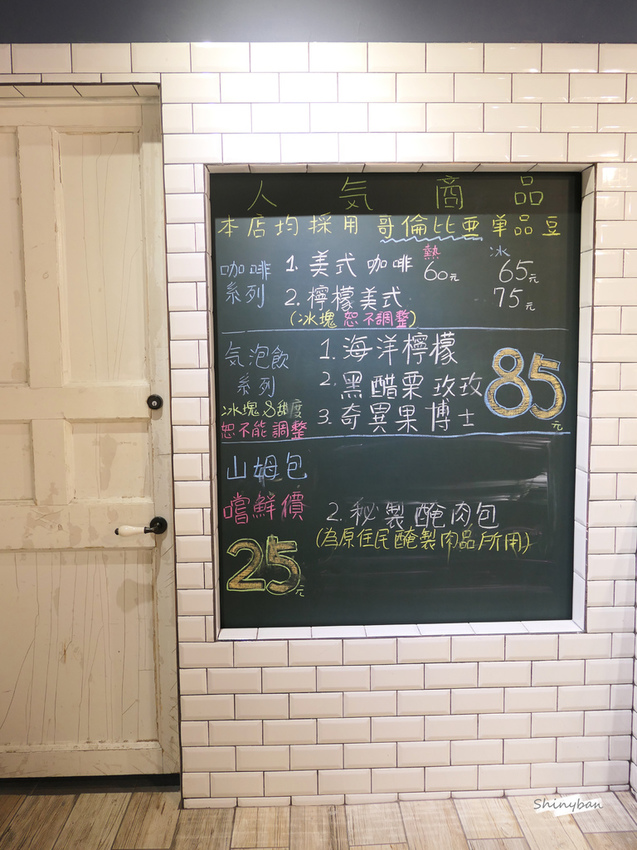 人気商品
本店均採用哥倫比亞單品豆
熱 冰
咖啡 1.美式咖啡 60元 65元
系列 2.檸檬美式 75元
(冰塊恕不調整)
気泡飲 1.海洋檸檬
系列 2.黑醋栗玫玫 85元
冰塊&甜度 3.奇異果博士
恕不能調整
山姆包
嚐鮮價 2.秘製醃肉包
(為原住民醃製肉品所用)
25元
Shinyban